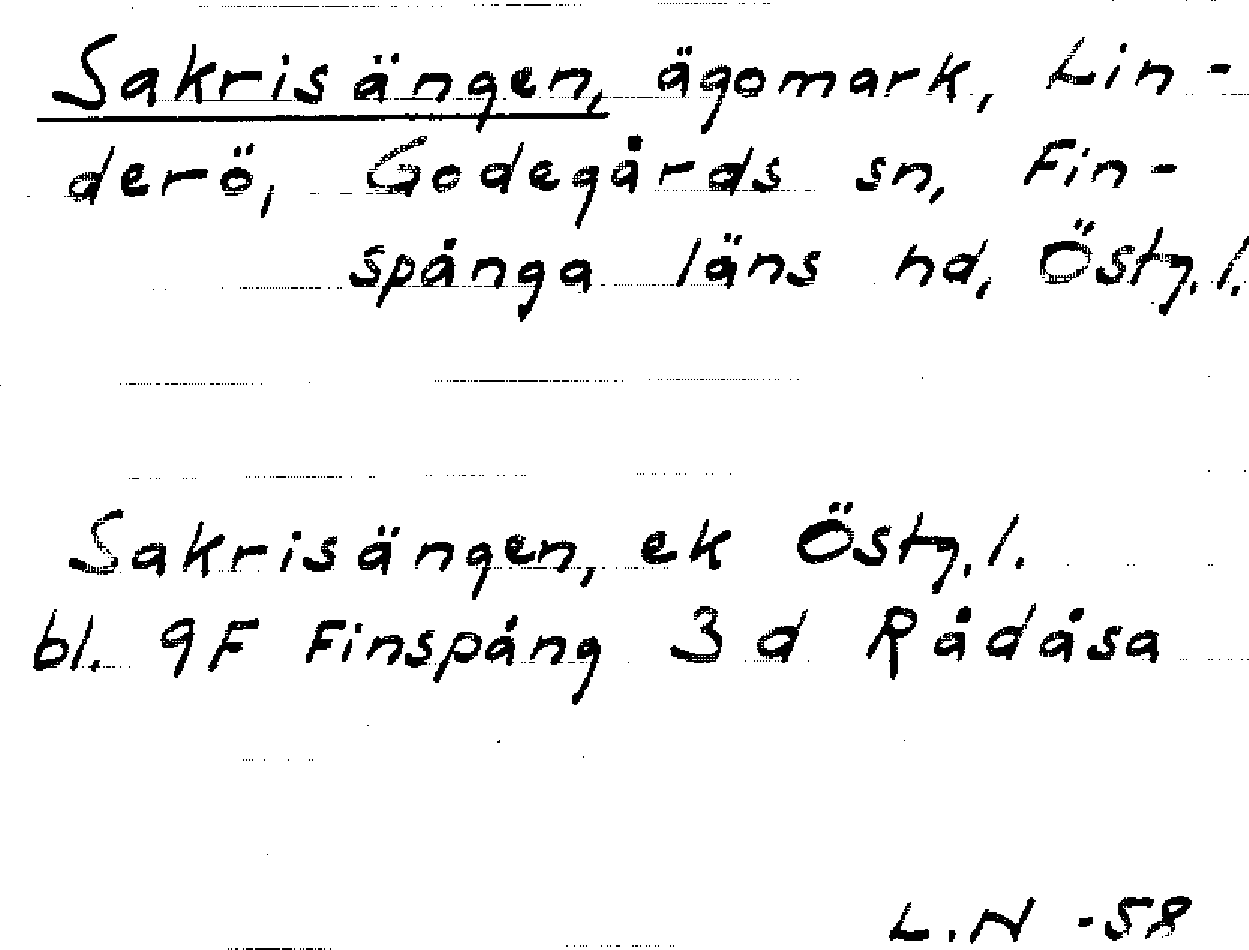 Sakrisängen, ägomark, Lin-
derö, Godegårds sn, Fin-
spånga läns hd, Östg.l.
Sakrisängen, ek Östg.l.
bl. 9F Finspång 3 d Rådåsa
L.N -58